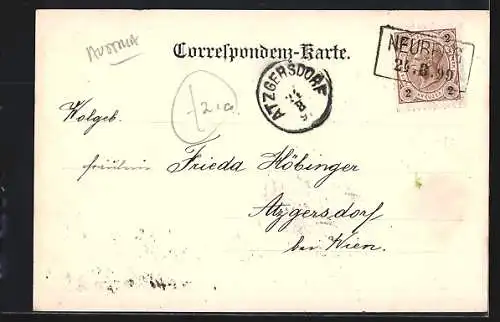 Austria
Correspondenz-Karte.
NEUBI
21.8.99
2 2
ATZGERSDORF
Wolgeb.
Fräulein Frieda Höbinger
Atzgersdorf
bei Wien.